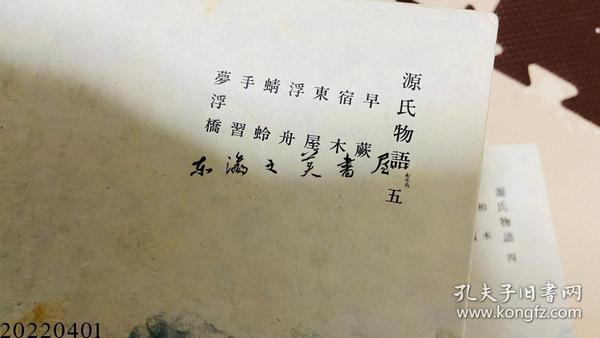 源氏物語 五
早蕨
宿木
東屋
浮舟
蜻蛉
手習
夢浮橋
东瀛文美書屋
源氏物語 四
柏木
20220401
孔夫子旧书网
www.kongfz.com